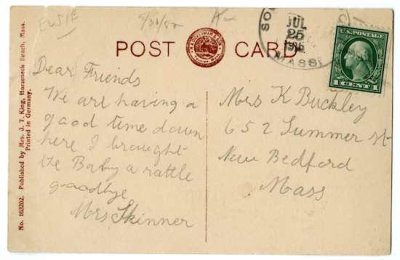 ELSIE
POST CARD
JUL
25
MASS.
U.S. POSTAGE
1 CENT 1
Dear Friends
We are having a
good time down
here I brought
the Baby a rattle
goodbye
Mrs Skinner
Mrs K Buckley
652 Summer St
New Bedford
Mass
No. 163202. Published by Mrs. J. T. King, Horseneck Beach, Mass.
Printed in Germany.